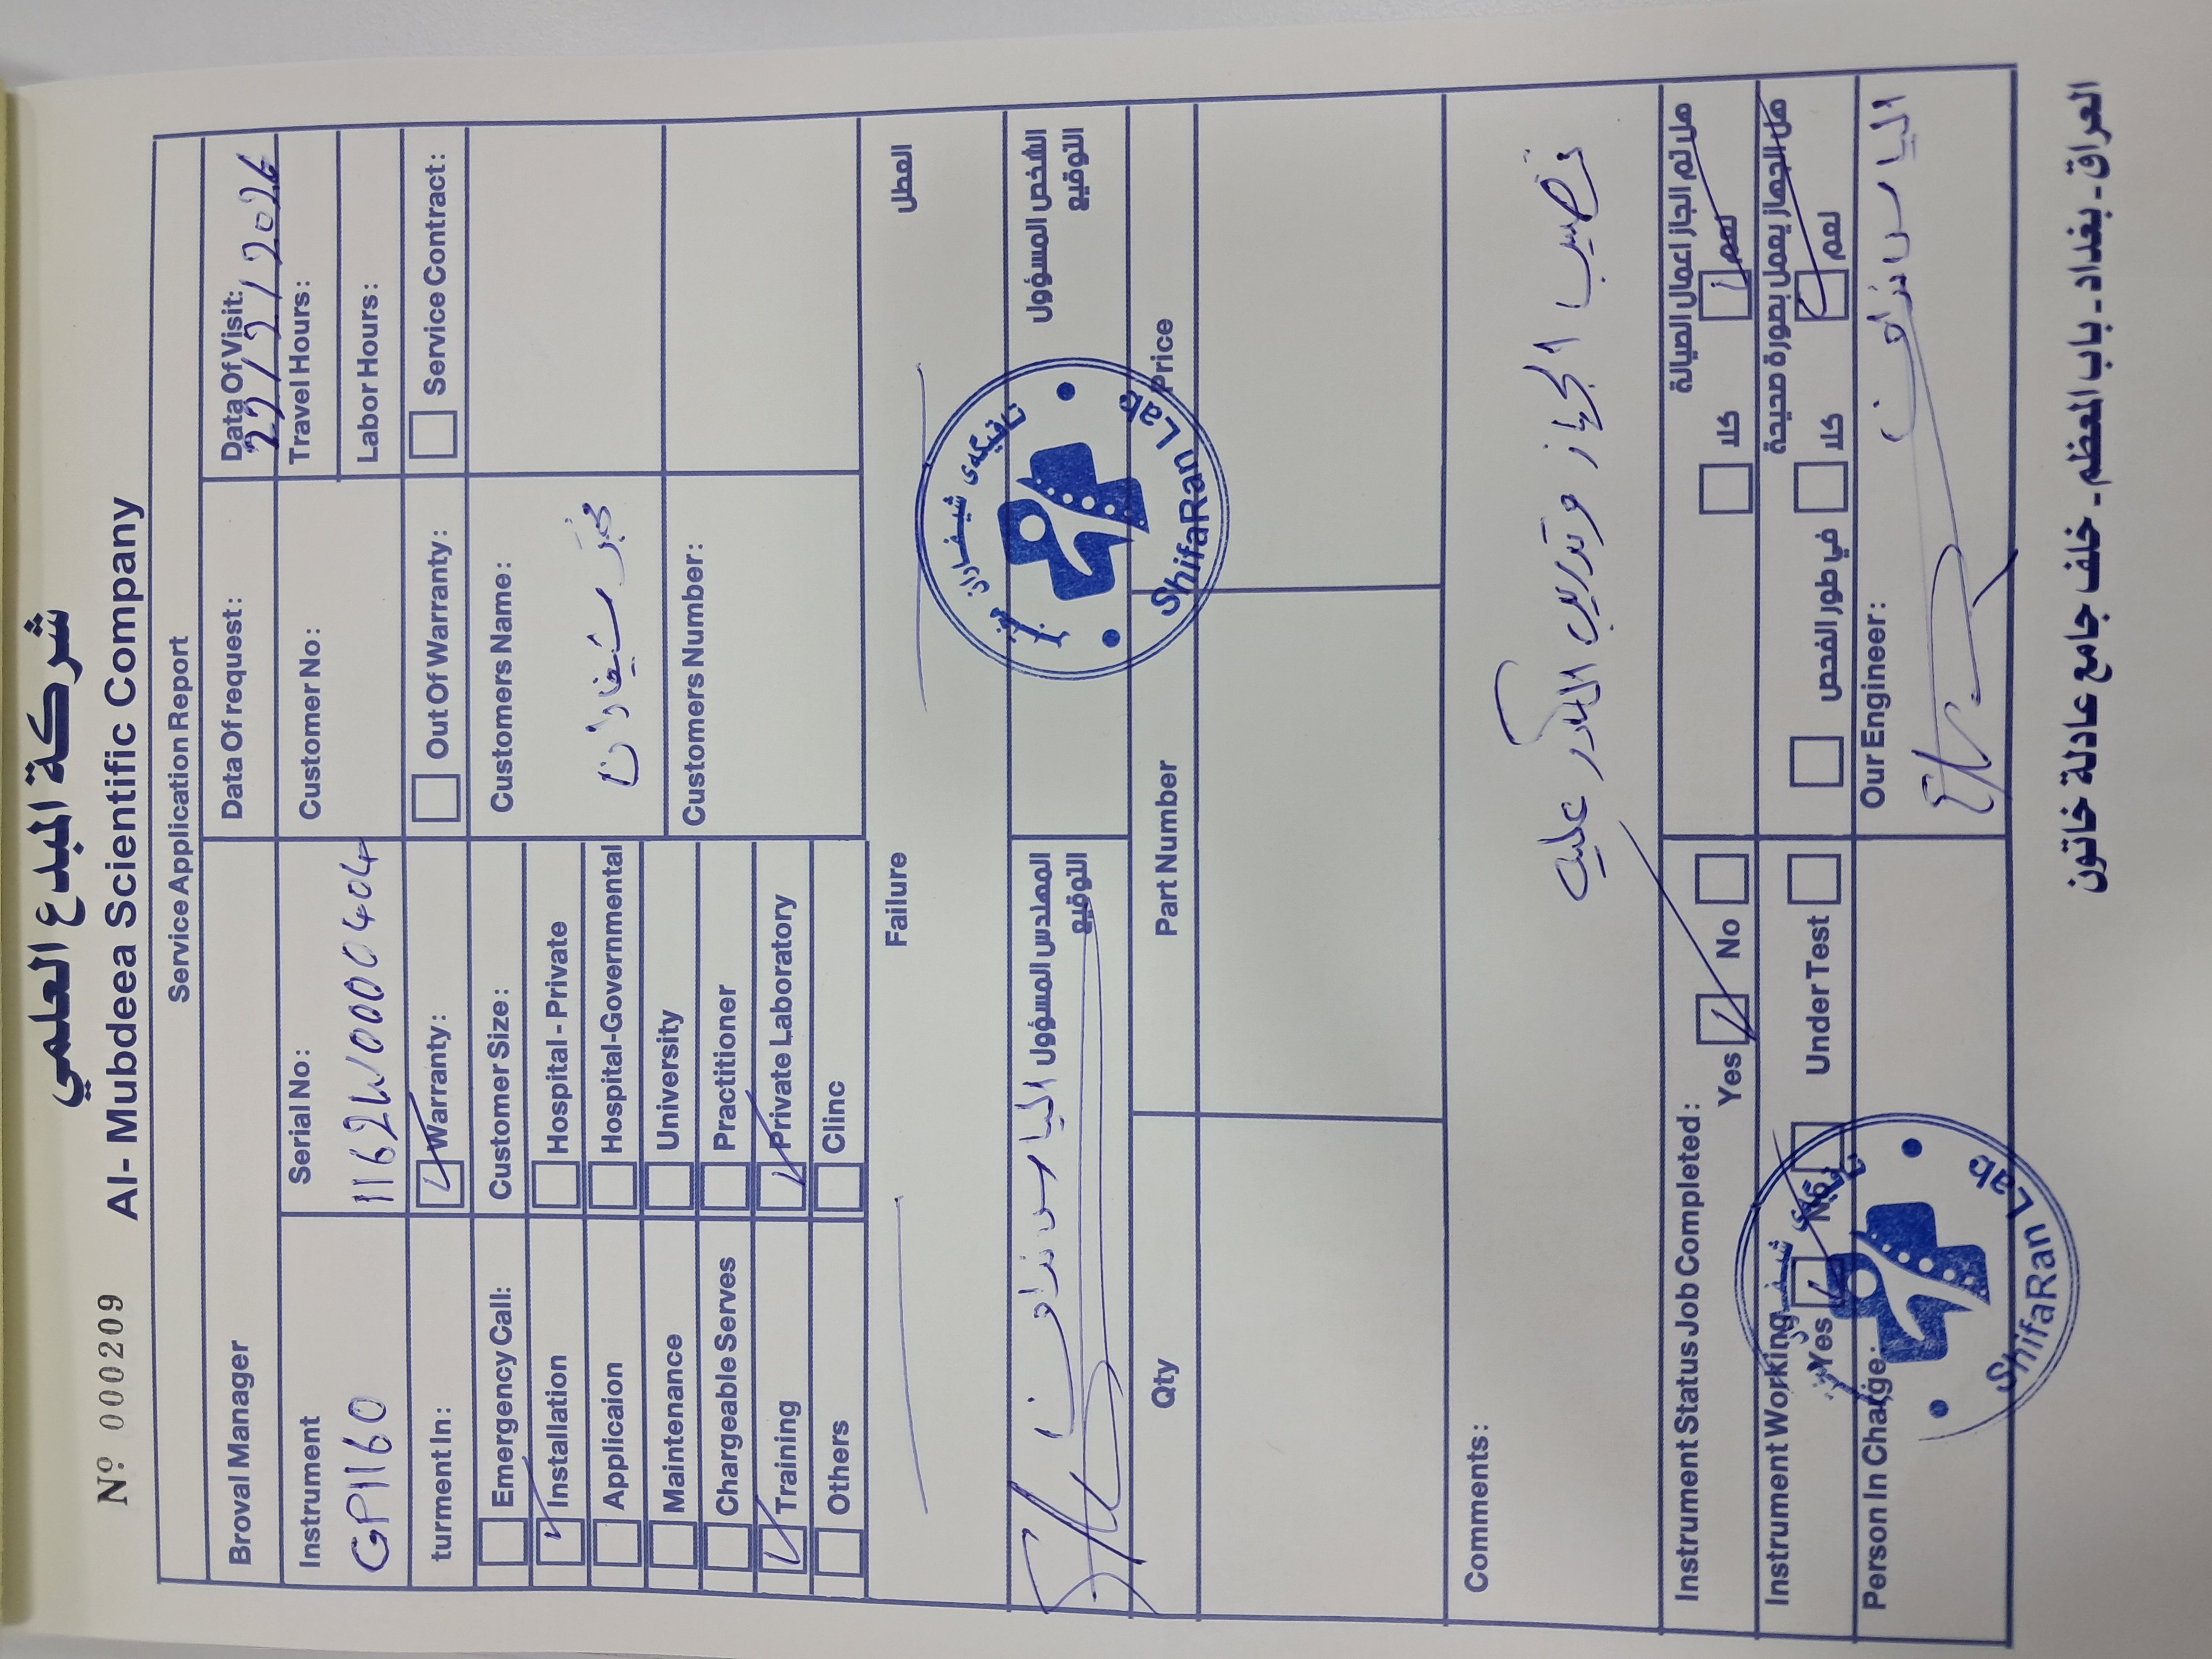 شركة المبدع العلمي
Nº 000209 Al- Mubdeea Scientific Company
Service Application Report
Broval Manager
Data Of request:
Data Of Visit:
22/2/2026
Instrument
GP1160
Serial No:
1162W000404
Customer No:
Travel Hours:
Labor Hours:
turment In:
Warranty:
Out Of Warranty:
Service Contract:
Emergency Call:
Installation
Applicaion
Maintenance
Chargeable Serves
Training
Others
Customer Size:
Hospital - Private
Hospital-Governmental
University
Practitioner
Private Laboratory
Clinc
Customers Name:
مختبر شيفاران
Customers Number:
Failure
العطل
المهندس المسؤول
التوقيع
الشخص المسؤول
التوقيع
تاقیگەی شیفاران
ShifaRan Lab
Qty
Part Number
Price
Comments:
نصب الجهاز وتدريب الكادر عليه
Instrument Status Job Completed:
Yes
No
هل تم انجاز اعمال الصيانة
كلا
نعم
Instrument Working
Yes
No
Under Test
هل الجهاز يعمل بصورة صحيحة
في طور الفحص
كلا
نعم
Person In Charge:
ShifaRan Lab
Our Engineer:
العراق - بغداد - باب المعظم - خلف جامع عادلة خاتون